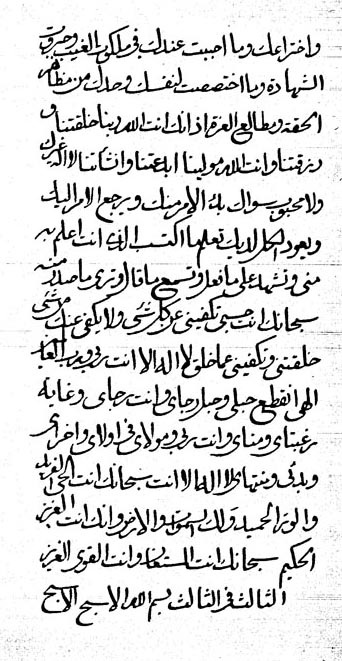 واختراعك وما احببت عندك في ملكوت الغيب وجبروت
الشهادة وما اختصصت لنفسك وحدك من مظاهر
الحقة ومطالع العزة اذ انك انت الله ربنا خلقتنا و
رزقتنا وانت الله مولينا ابدعتنا وانشأتنا لا اله غيرك
ولا محبوب سواك بدء الامر منك ويرجع الامر اليك
ويعود الكل لديك تعلم ما اكتسب الذي انت اعلم به
منى وتشهد على ما فعل وتسمع ما قال وترى ما صدر منه
سبحانك انت حسبى تكفينى عن كل شئ ولا يكفى عنك من شئ
خلقتنى وتكفينى عما خلق لا اله الا انت ربى ورب العالمين
الهى انقطع حبلى وحبل رجاى وانت رجاى وغاية
رغبتاى ومناى وانت ربى ومولاى في اولاى واخراى
وبدئى ومنتهاى لا اله الا انت سبحانك انت الحى الفريد
والوتر الحميد ولك السموات والارض وانك انت العزيز
الحكيم سبحانك انت المستعان وانت القوى العزيز
الثالث في الثالث بسم الله الابهج الابهج